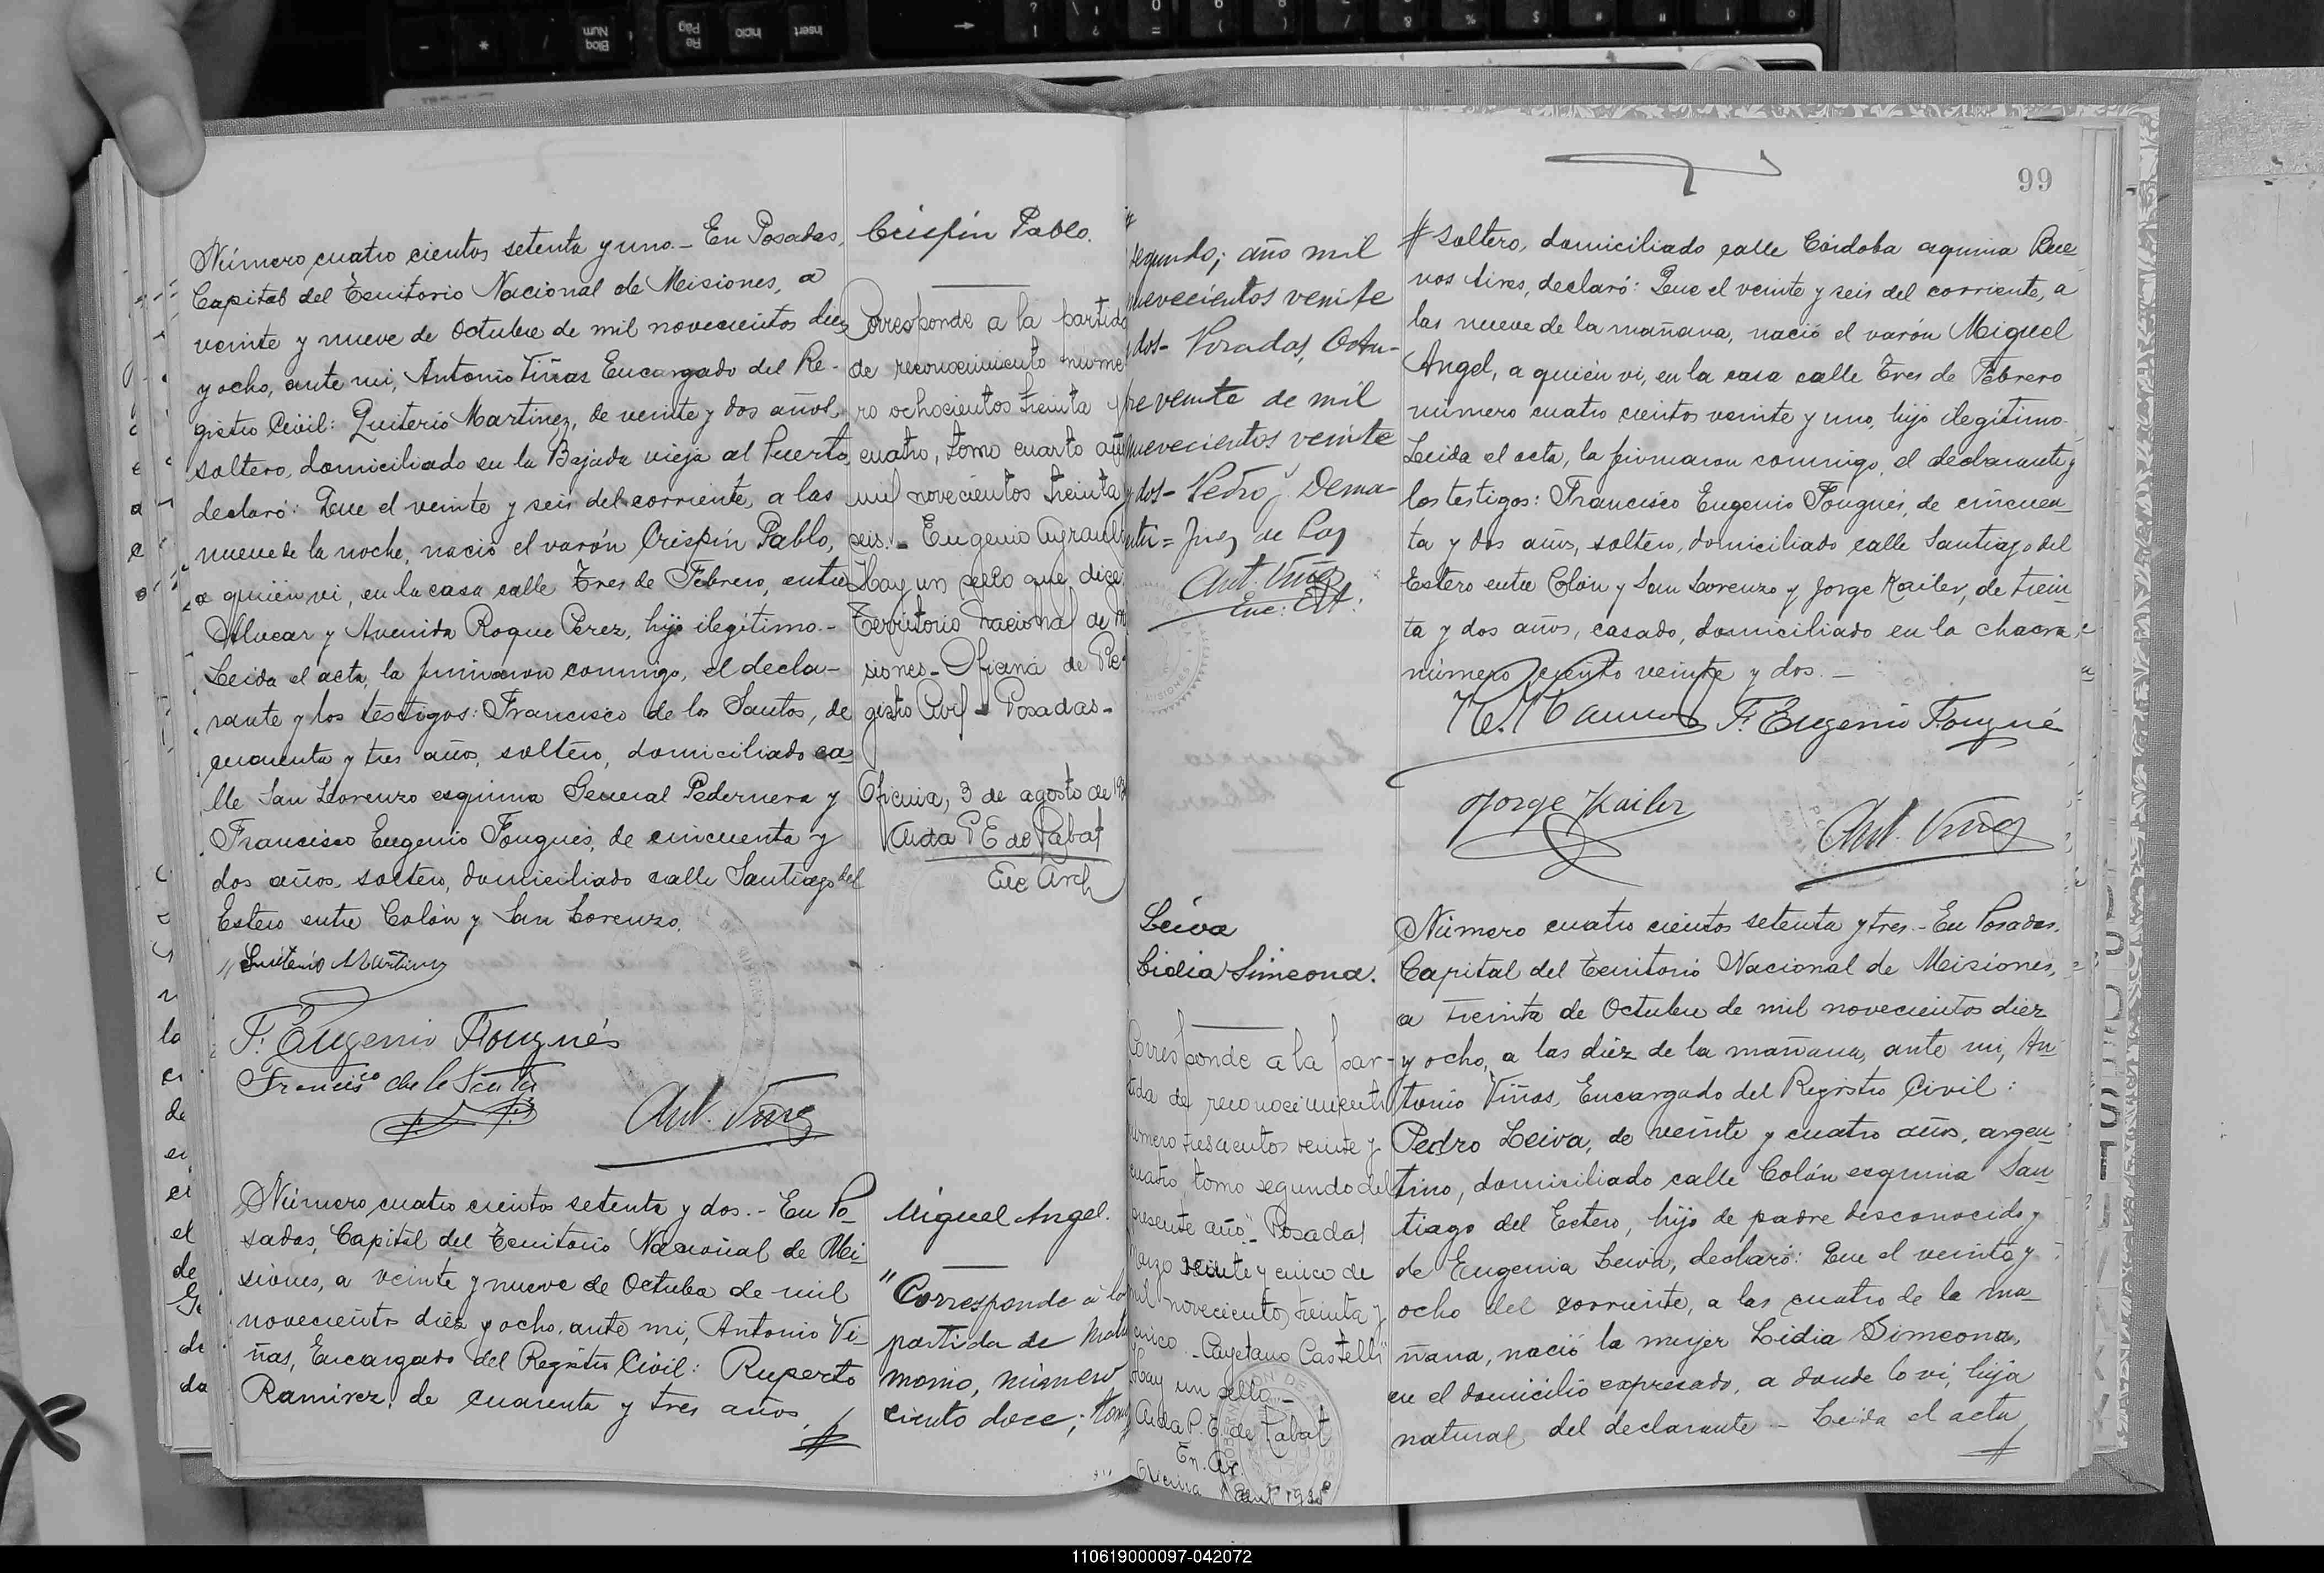 Número cuatro cientos setenta y uno.- En Posadas,
Capital del Territorio Nacional de Misiones, a
veinte y nueve de Octubre de mil novecientos diez
y ocho, ante mi, Antonio Viñas Encargado del Re-
gistro Civil: Quiterio Martinez, de veinte y dos años,
soltero, domiciliado en la Bajada vieja al Puerto,
declaró: Que el veinte y seis del corriente, a las
nueve de la noche, nació el varón Crispín Pablo,
a quien vi, en la casa calle Tres de Febrero, entre
Alvear y Avenida Roque Perez, hijo ilegítimo.-
Leida el acta, la firmaron conmigo, el decla-
rante y los testigos: Francisco de los Santos, de
cuarenta y tres años, soltero, domiciliado ca-
lle San Llorenzo esquina General Pedernera y
Francisco Eugenio Fougués, de cincuenta y
dos años, soltero, domiciliado calle Santiago del
Estero entre Colón y San Lorenzo.
Quiterio Martinez
F. Eugenio Fougnés
Francisco de los Santos
Ant. Viñas
Número cuatro cientos setenta y dos.- En Po-
sadas, Capital del Territorio Nacional de Mi-
siones, a veinte y nueve de Octubre de mil
novecientos diez y ocho, ante mi, Antonio Vi-
ñas, Encargado del Registro Civil: Ruperto
Ramirez, de cuarenta y tres años,
Crispín Pablo.
Corresponde a la partida
de reconocimiento núme
ro ochocientos treinta y
cuatro, tomo cuarto año
mil novecientos treinta y
seis.-Eugenio
Hay un sello que dice:
Territorio Nacional de Mi
siones-Oficina de Re-
gistro Civil-Posadas-
Oficina, 3 de agosto de
Aida P E de Rabat
Enc Arch
Miguel Angel.
"Corresponde á la
partida de Matri
monio, número
ciento doce; tomo
segundo; año mil
novecientos veinte
y dos- Posadas, Octu-
bre veinte de mil
novecientos veinte
y dos- Pedro J. Dema-
= Juez de Paz
Ant. Viñas
Leiva
Lidia Simeona.
Corresponde a la par-
tida de reconocimiento
número trescientos veinte y
cuatro, tomo segundo del
presente año"- Posadas
Marzo veinte y cinco de
mil novecientos treinta y
cinco.-Cayetano Castelli"
Hay un sello-
Aida P. E. de Rabat
En. Ar.
Oficina
99
soltero, domiciliado calle Córdoba esquina Bue-
nos Aires, declaró: Que el veinte y seis del corriente, a
las nueve de la mañana, nació el varón Miguel
Angel, a quien vi, en la casa calle Tres de Febrero
número cuatro cientos veinte y uno, hijo ilegítimo.
Leida el acta, la firmaron conmigo, el declarante y
los testigos: Francisco Eugenio Fougués, de cincuen-
ta y dos años, soltero, domiciliado calle Santiago del
Estero entre Colón y San Lorenzo y Jorge Kailer, de trein-
ta y dos años, casado, domiciliado en la chacra
número ciento veinte y dos.-
F. Eugenio Fougné
Jorge Kailer
Ant. Viñas
Número cuatro cientos setenta y tres.- En Posadas,
Capital del Territorio Nacional de Misiones,
a treinta de Octubre de mil novecientos diez
y ocho, a las diez de la mañana, ante mi, An-
tonio Viñas, Encargado del Registro Civil:
Pedro Leiva, de veinte y cuatro años, argen-
tino, domiciliado calle Colón esquina San-
tiago del Estero, hijo de padre desconocido y
de Eugenia Leiva, declaró: Que el veinte y
ocho del corriente, a las cuatro de la ma-
ñana, nació la mujer Lidia Simeona,
en el domicilio expresado, a donde lo vi, hija
natural del declarante.- Leida el acta
110619000097-042072